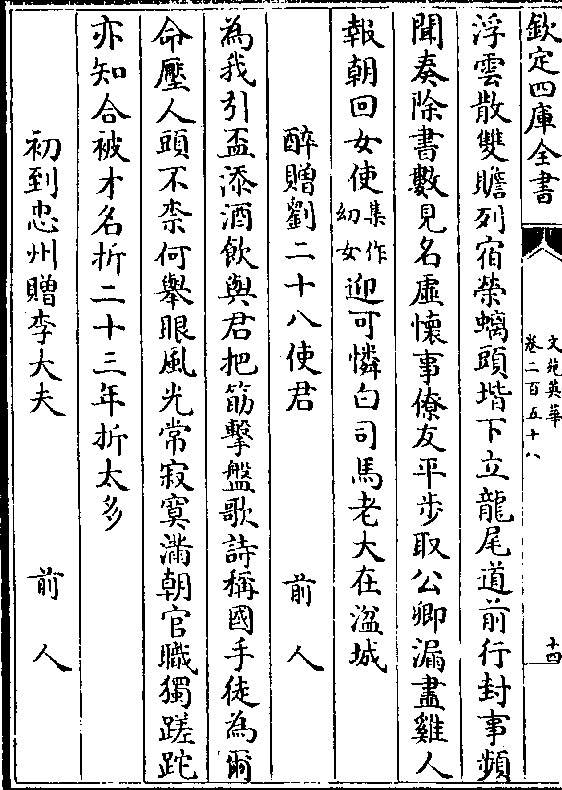 欽定四庫全書
文苑英華
卷二百五十八
十四
浮雲散雙瞻列宿榮螭頭堦下立龍尾道前行封事頻
聞奏除書數見名虛懷事僚友平步取公卿漏盡雞人
報朝回女使集作幼女迎可憐白司馬老大在湓城
醉贈劉二十八使君 前人
為我引盃添酒飲與君把筯擊盤歌詩稱國手徒為爾
命壓人頭不柰何舉眼風光常寂寞滿朝官職獨蹉跎
亦知合被才名折二十三年折太多
初到忠州贈李大夫 前人